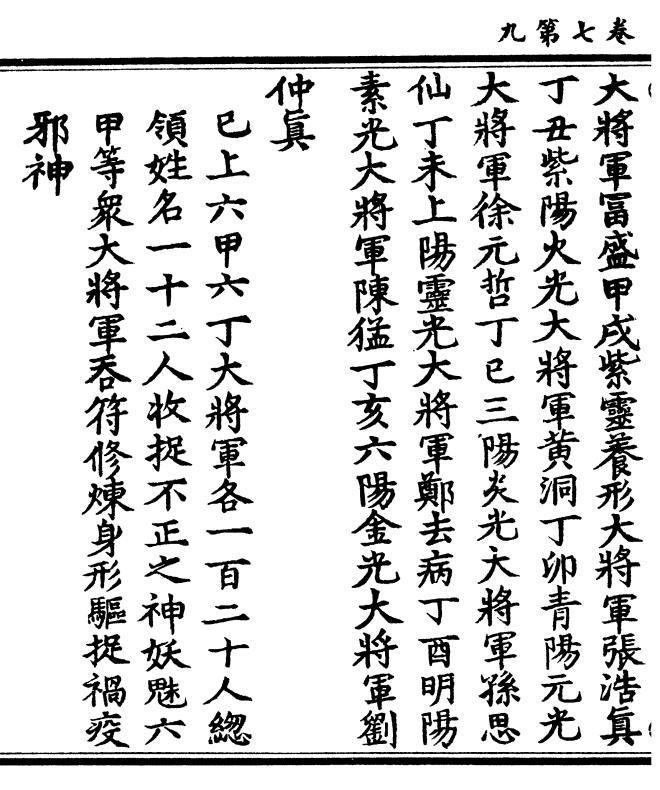 卷七第九
大將軍冨盛甲戌紫靈養形大將軍張浩真
丁丑紫陽火光大將軍黃洞丁卯青陽元光
大將軍徐元哲丁巳三陽炎光大將軍孫思
仙丁未上陽靈光大將軍鄭去病丁酉明陽
素光大將軍陳猛丁亥六陽金光大將軍劉
仲真
已上六甲六丁大將軍各一百二十人緫
領姓名一十二人收捉不正之神妖魅六
甲等衆大將軍吞符修煉身形驅捉禍疫
邪神